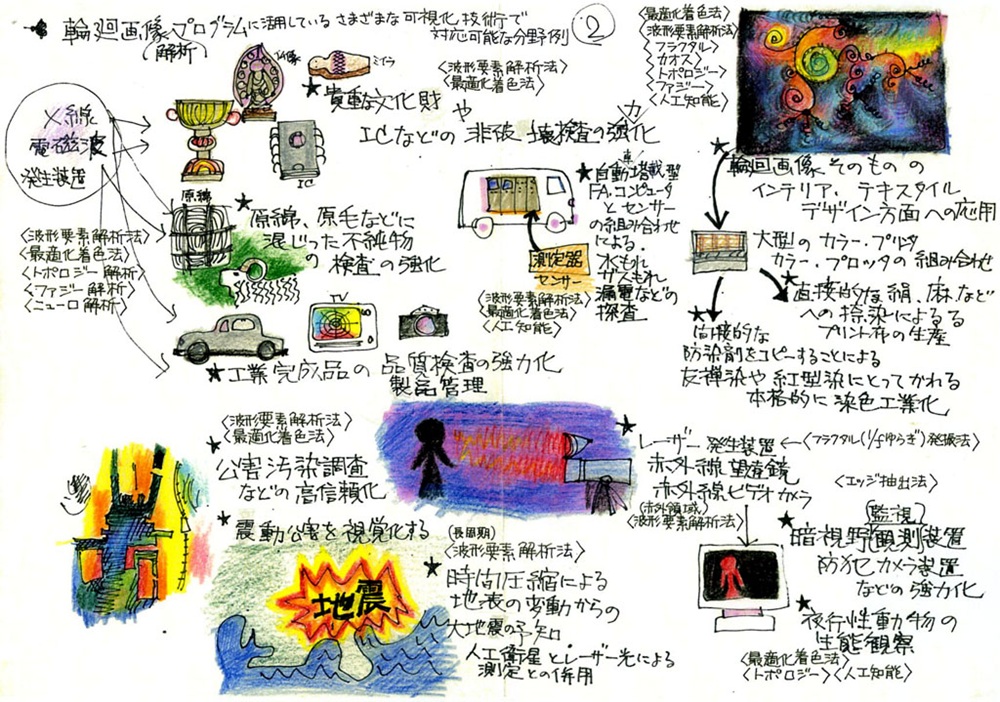 輪廻画像プログラムに活用しているさまざまな可視化技術で
(解析)
対応可能な分野例 ②
仏像
ミイラ
★貴重な文化財
や
〈波形要素解析法〉
〈最適化着色法〉
ICなどの非破壊検査の強化
IC
X線
電磁波
発生装置
原綿
〈波形要素解析法〉
〈最適化着色法〉
〈トポロジー解析〉
〈ファジー解析〉
〈ニューロ解析〉
★原綿、原毛などに
混じった不純物
の検査の強化
TV
★工業完成品の品質検査の強力化
製品管理
★自動車搭載型
FA.コンピュータ
とセンサー
の組み合わせ
による.
水もれ
ガスもれ
漏電などの
探査
測定器
センサー
〈波形要素解析法〉
〈最適化着色法〉
〈人工知能〉
〈最適化着色法〉
〈波形要素解析法〉
〈フラクタル〉
〈カオス〉
〈トポロジー〉
〈ファジー〉
〈人工知能〉
★輪廻画像そのものの
インテリア、テキスタイル
デザイン方面への応用
大型のカラー・プリンタ
カラー・プロッタの組み合わせ
★直接的な絹、麻など
への捺染による
プリント布の生産
★間接的な
防染剤をコピーすることによる
友禅染や紅型染にとってかわる
本格的に染色工業化
〈波形要素解析法〉
〈最適化着色法〉
★公害汚染調査
などの高信頼化
★震動公害を視覚化する
★レーザー発生装置 ← 〈フラクタル(1/fゆらぎ)発振法〉
赤外線望遠鏡
赤外線ビデオカメラ
(赤外領域)
〈波形要素解析法〉
〈エッジ抽出法〉
[監視]
★暗視野観測装置
防犯カメラ装置
などの強力化
★夜行性動物の
生態観察
〈最適化着色法〉
〈トポロジー〉〈人工知能〉
地震
(長周期)
〈波形要素解析法〉
★時間圧縮による
地表の変動からの
大地震の予知
人工衛星とレーザー光による
測定との併用